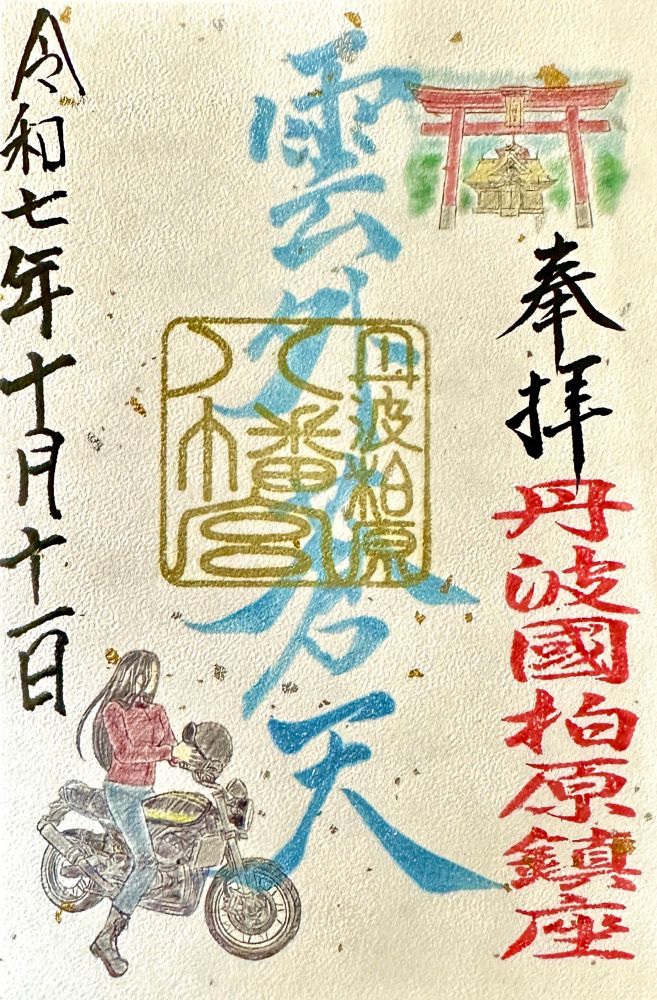 奉拝
丹波國柏原鎮座
雲外蒼天
丹波柏原
八幡宮
令和七年十月十一日